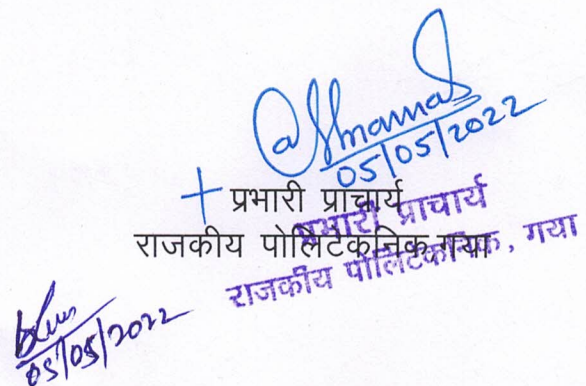 05/05/2022
प्रभारी प्राचार्य
राजकीय पोलिटेकनिक गया
प्रभारी प्राचार्य
राजकीय पोलिटेकनिक, गया
05/05/2022